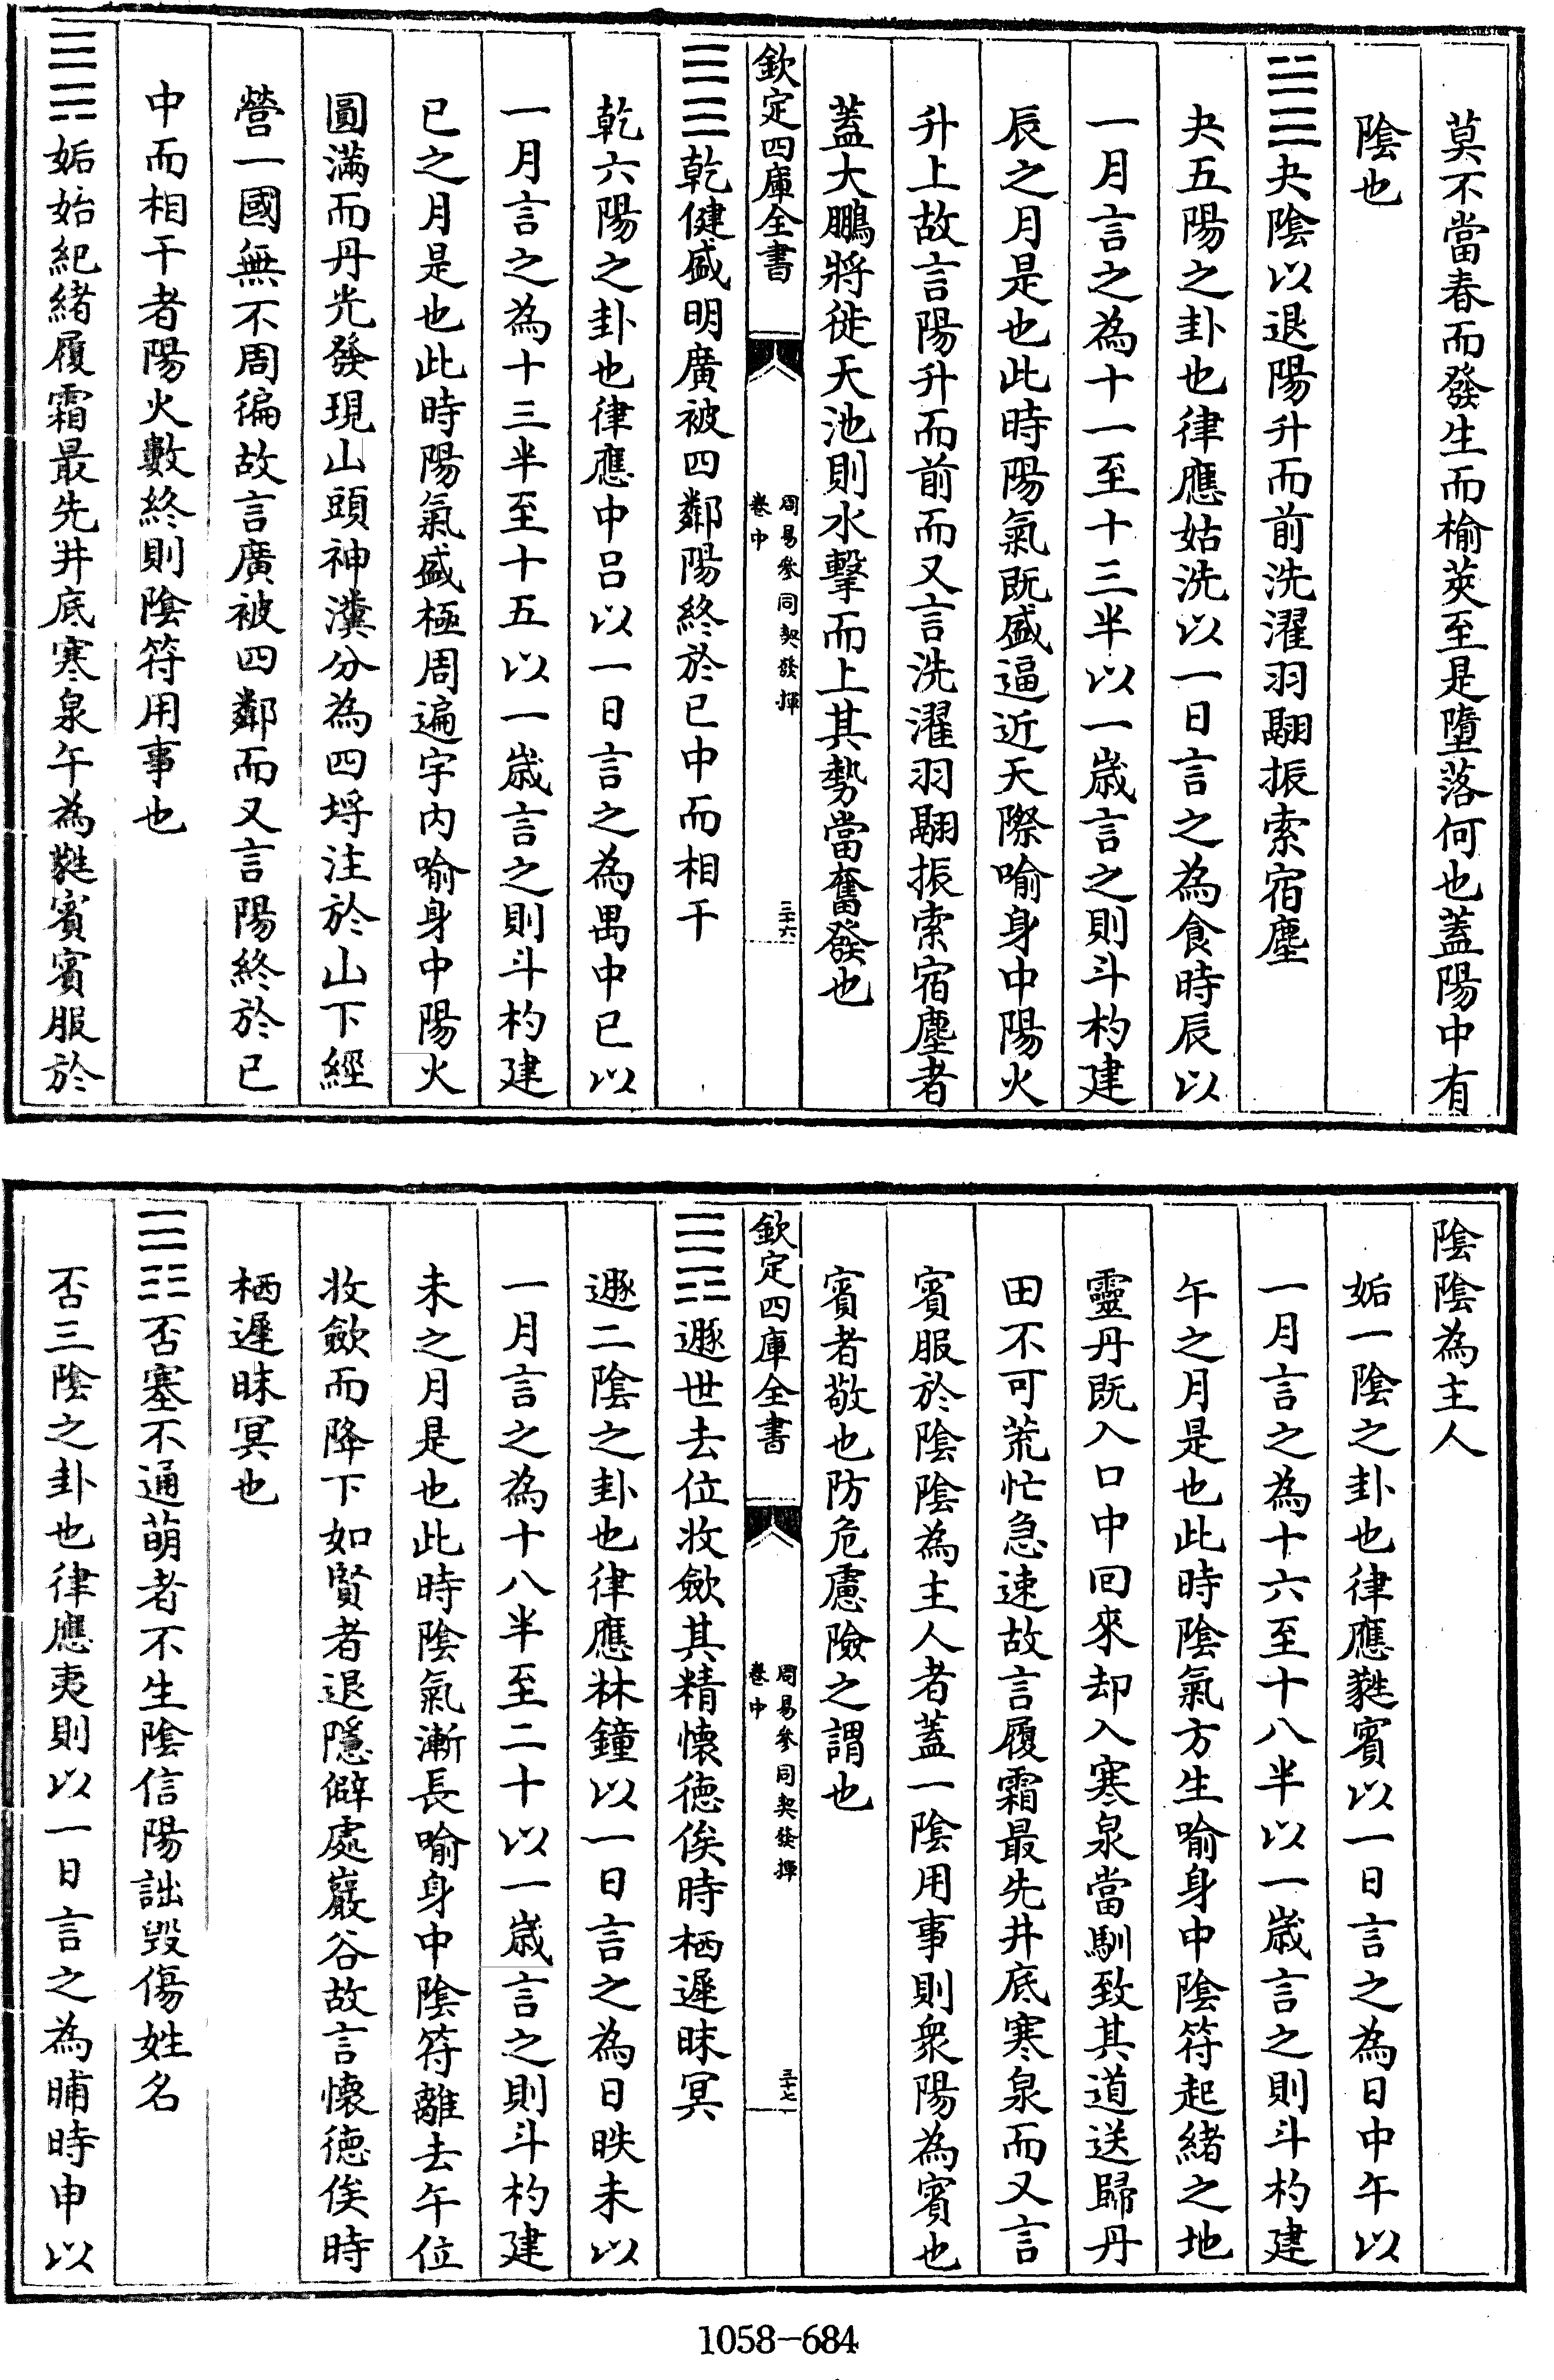 莫不當春而發生而榆莢至是墮落何也蓋陽中有
陰也
䷪夬陰以退陽升而前洗濯羽翮振索宿塵
夬五陽之卦也律應姑洗以一日言之為食時辰以
一月言之為十一至十三半以一歲言之則斗杓建
辰之月是也此時陽氣既盛逼近天際喻身中陽火
升上故言陽升而前而又言洗濯羽翮振索宿塵者
蓋大鵬將徙天池則水擊而上其勢當奮發也
欽定四庫全書
周易參同契發揮
卷中
三十六
䷀乾健盛明廣被四鄰陽終於巳中而相干
乾六陽之卦也律應中呂以一日言之為禺中巳以
一月言之為十三半至十五以一歲言之則斗杓建
巳之月是也此時陽氣盛極周遍宇內喻身中陽火
圓滿而丹光發現山頭神瀵分為四埒注於山下經
營一國無不周徧故言廣被四鄰而又言陽終於巳
中而相干者陽火數終則陰符用事也
䷫姤始紀緒履霜最先井底寒泉午為蕤賓賓服於
陰陰為主人
姤一陰之卦也律應蕤賓以一日言之為日中午以
一月言之為十六至十八半以一歲言之則斗杓建
午之月是也此時陰氣方生喻身中陰符起緒之地
靈丹既入口中回來却入寒泉當馴致其道送歸丹
田不可荒忙急速故言履霜最先井底寒泉而又言
賓服於陰陰為主人者蓋一陰用事則衆陽為賓也
賓者敬也防危慮險之謂也
欽定四庫全書
周易參同契發揮
卷中
三十七
䷠遯世去位收斂其精懷德俟時栖遲昧冥
遯二陰之卦也律應林鐘以一日言之為日昳未以
一月言之為十八半至二十以一歲言之則斗杓建
未之月是也此時陰氣漸長喻身中陰符離去午位
收斂而降下如賢者退隱僻處巖谷故言懷德俟時
栖遲昧冥也
䷋否塞不通萌者不生陰信陽詘毀傷姓名
否三陰之卦也律應夷則以一日言之為晡時申以
1058-684